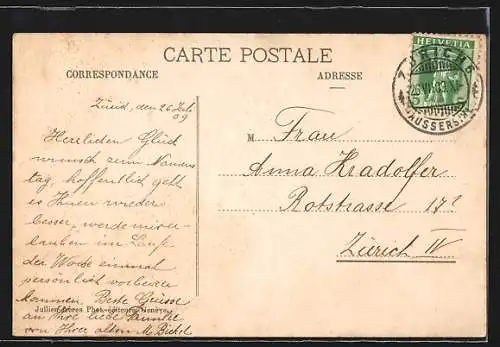 CARTE POSTALE
CORRESPONDANCE
ADRESSE
HELVETIA
Zürich, den 26 Juli
09
Herzlichen Glück
wunsch zum Namens
tag, hoffentlich geht
es Ihnen wieder
besser, werde mir er-
lauben im Lauf
der Woche einmal
persönlich vorbeizu
kommen. Beste Grüsse
an Ihre liebe Familie
von Ihrer alten M. Bickel
Jullien frères Phot.-éditeurs, Genève
M
Frau
Anna Hradolfer
Rotstrasse 17
Zürich IV
AUSSERSIHL